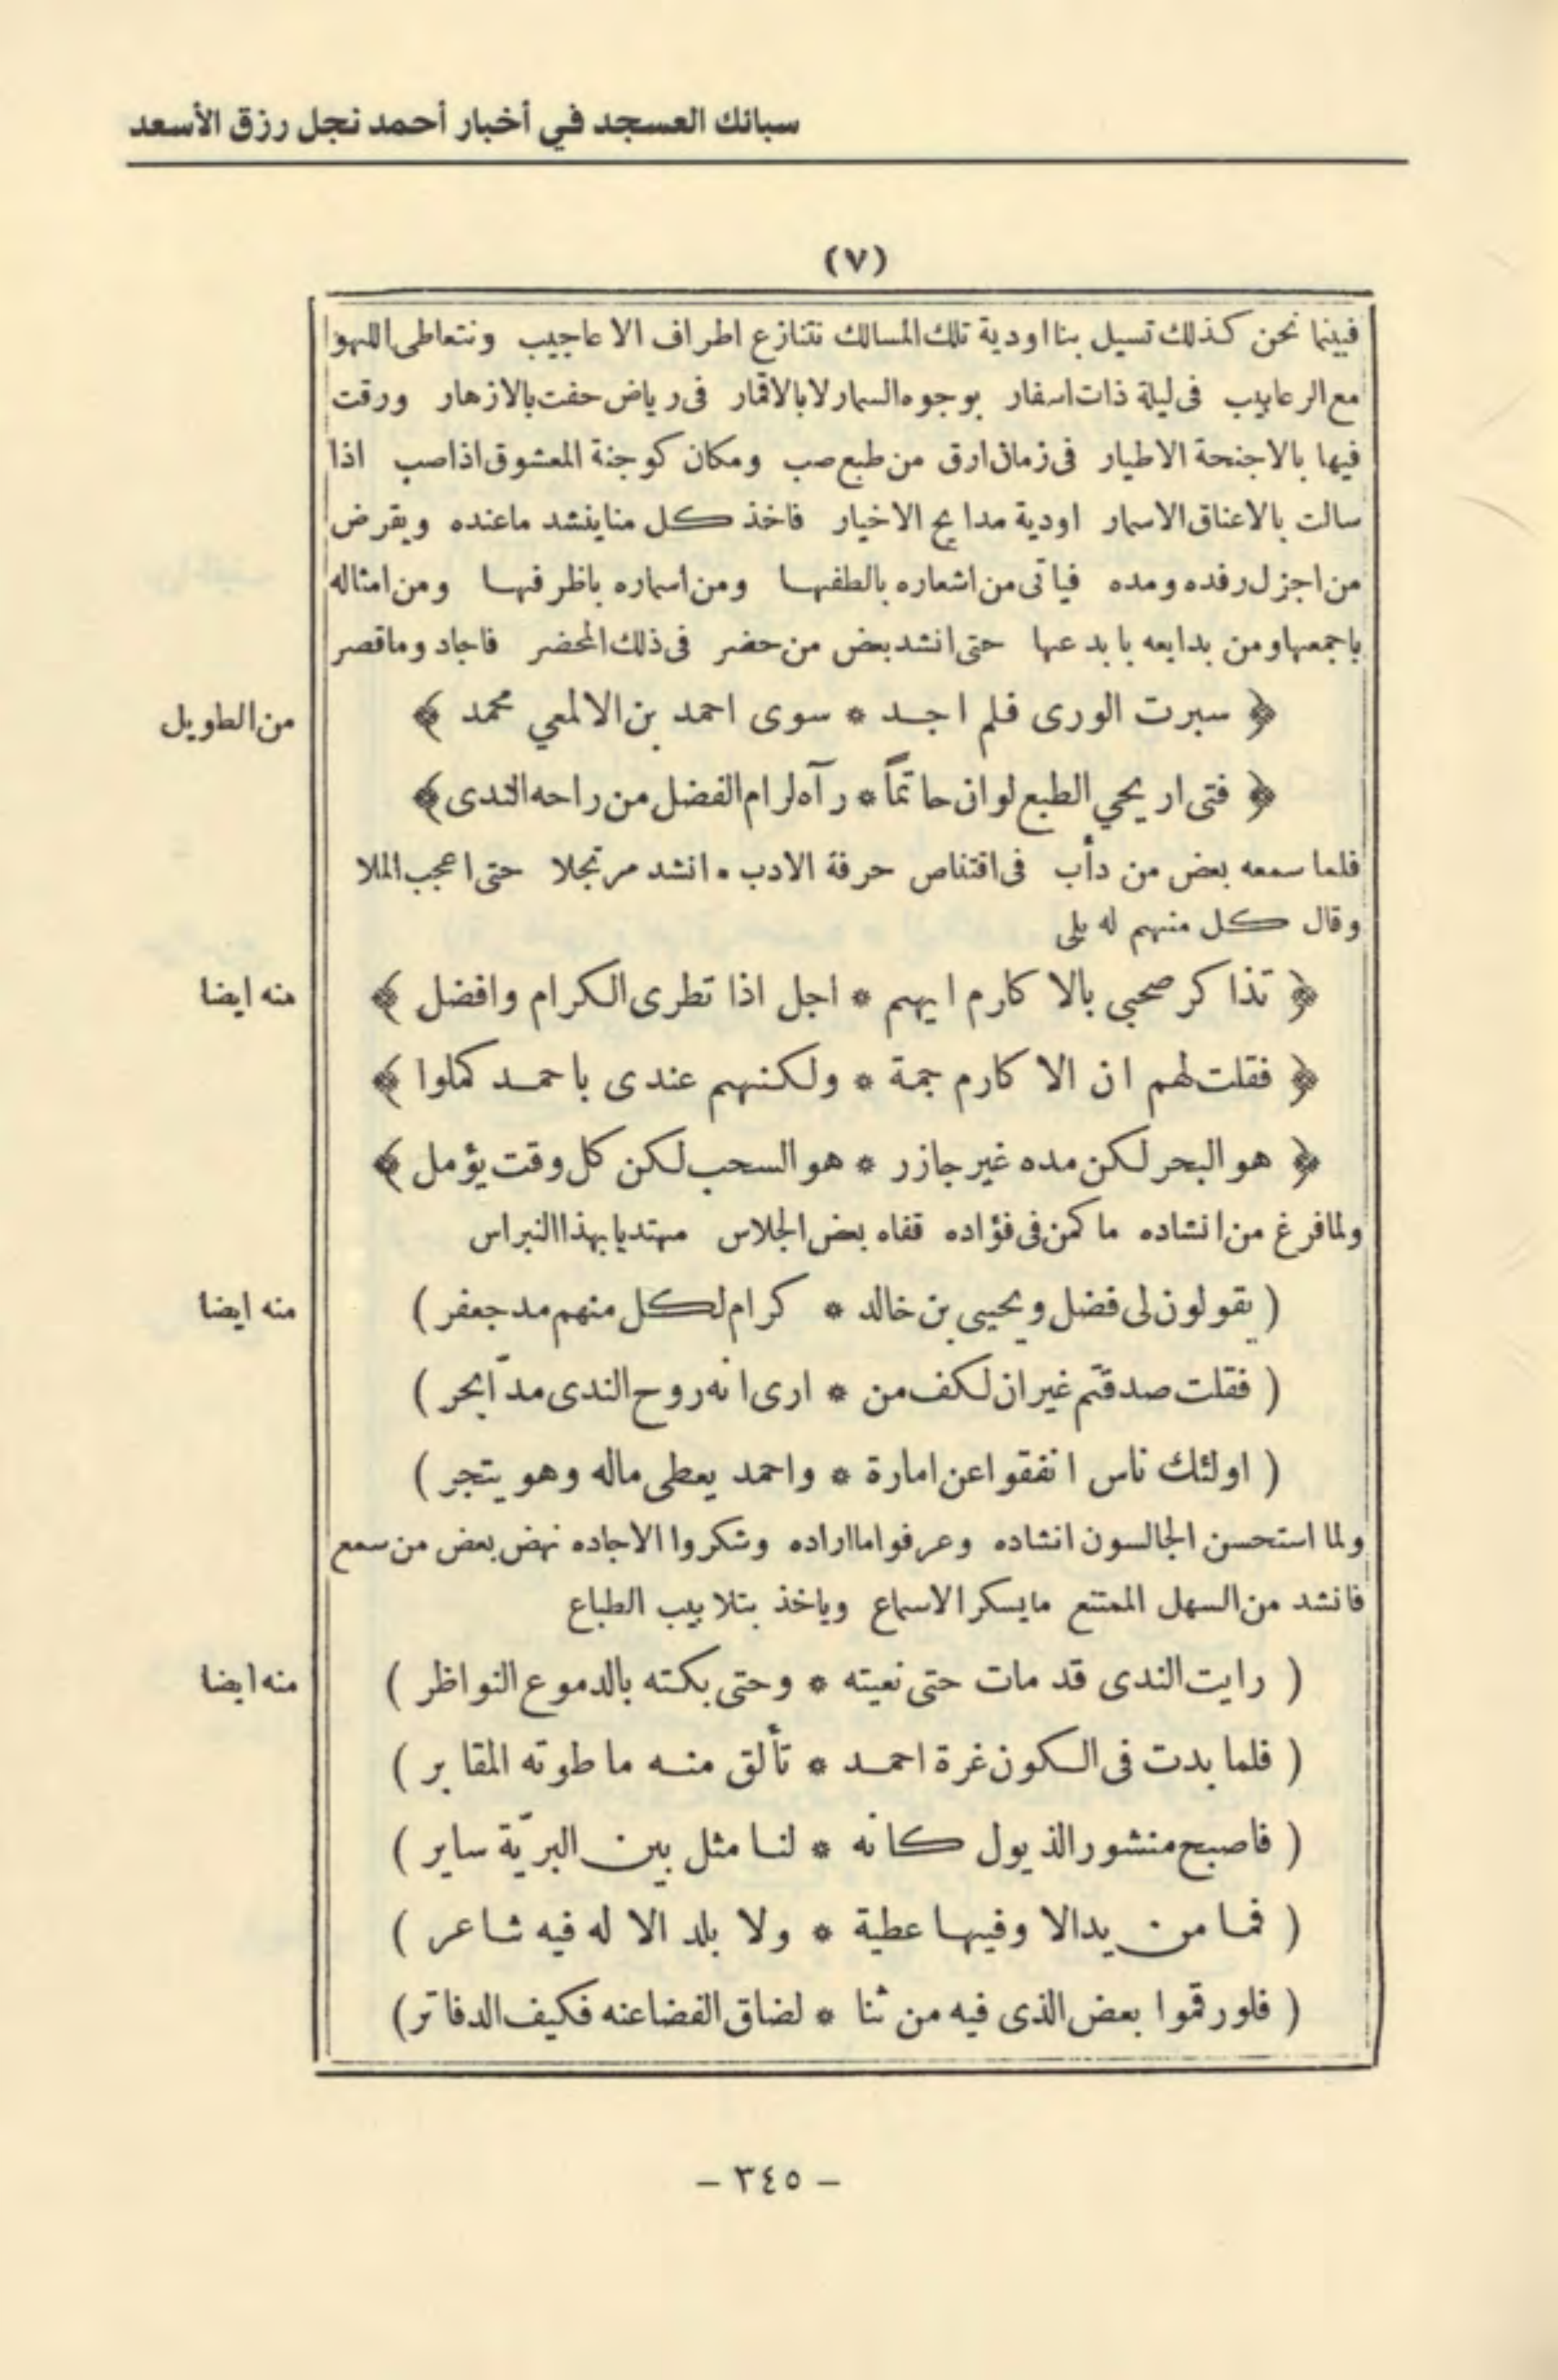 سبائك العسجد في أخبار أحمد نجل رزق الأسعد
(٧)
فبينما نحن كذلك تسيل بنا اودية تلك المسالك نتنازع اطراف الاعاجيب ونتعاطى اللهو
مع الرعابيب فى ليلة ذات اسفار بوجوه السمار لا بالاقمار فى رياض حفت بالازهار ورقت
فيها بالاجنحة الاطيار فى زمان ارق من طبع صب ومكان كوجنة المعشوق اذا صب اذا
سالت بالاعناق الاسمار اودية مدايح الاخيار فاخذ كل منا ينشد ما عنده ويقرض
من اجزل رفده ومده فياتى من اشعاره بالطفها ومن اسماره باظرفها ومن امثاله
باجمعها ومن بدايعه بابدعها حتى انشد بعض من حضر فى ذلك المحضر فاجاد وما قصر
﴿ سبرت الورى فلم اجد * سوى احمد بن الالمعي محمد ﴾
من الطويل
﴿ فتى اريحي الطبع لو ان حاتماً * رآه لرام الفضل من راحه الندى ﴾
فلما سمعه بعض من دأب فى اقتناص حرفة الادب • انشد مرتجلا حتى اعجب الملا
وقال كل منهم له بلى
﴿ تذاكر صحبي بالاكارم ايهم * اجل اذا تطرى الكرام وافضل ﴾
منه ايضا
﴿ فقلت لهم ان الاكارم جمة * ولكنهم عندى باحمد كملوا ﴾
﴿ هو البحر لكن مده غير جازر * هو السحب لكن كل وقت يؤمل ﴾
ولما فرغ من انشاده ما كمن فى فؤاده قفاه بعض الجلاس مهتديا بهذا النبراس
( يقولون لى فضل ويحيى بن خالد * كرام لكل منهم مد جعفر )
منه ايضا
( فقلت صدقتم غير ان لكف من * ارى انه روح الندى مدّ أبحر )
( اولئك ناس انفقوا عن امارة * واحمد يعطى ماله وهو يتجر )
ولما استحسن الجالسون انشاده وعرفوا ما اراده وشكروا الاجاده نهض بعض من سمع
فانشد من السهل الممتنع ما يسكر الاسماع وياخذ بتلابيب الطباع
( رايت الندى قد مات حتى نعيته * وحتى بكته بالدموع النواظر )
منه ايضا
( فلما بدت فى الكون غرة احمد * تألق منه ما طوته المقابر )
( فاصبح منشور الذيول كانه * لنا مثل بين البريّة ساير )
( فما من يد الا وفيها عطية * ولا بلد الا له فيه شاعر )
( فلو رقموا بعض الذى فيه من ثنا * لضاق الفضا عنه فكيف الدفاتر )
– ٣٤٥ –